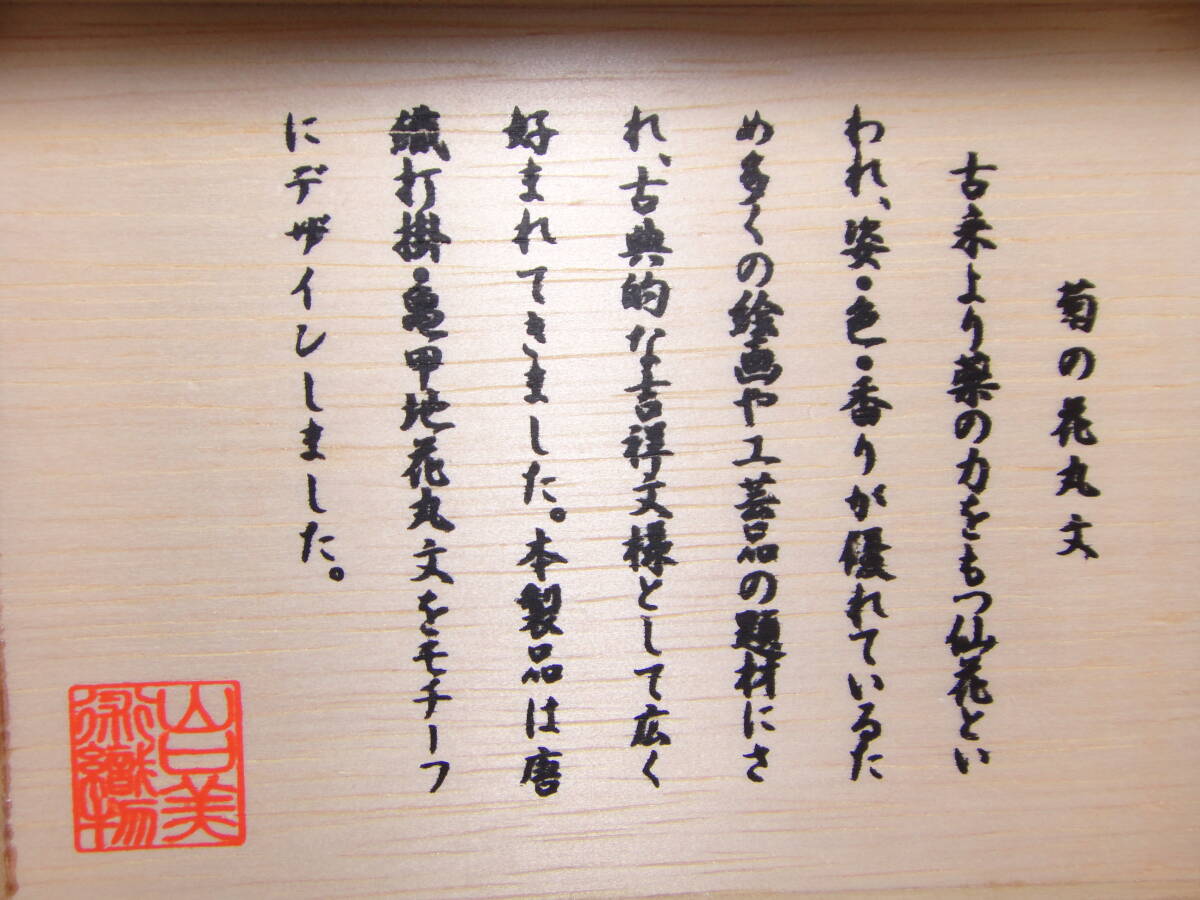 菊の花丸文
古来より薬の力をもつ仙花とい
われ、姿・色・香りが優れているた
め多くの絵画や工芸品の題材にさ
れ、古典的な吉祥文様として広く
好まれてきました。本製品は唐
織打掛・亀甲地花丸文をモチーフ
にデザインしました。
山口美
術織物